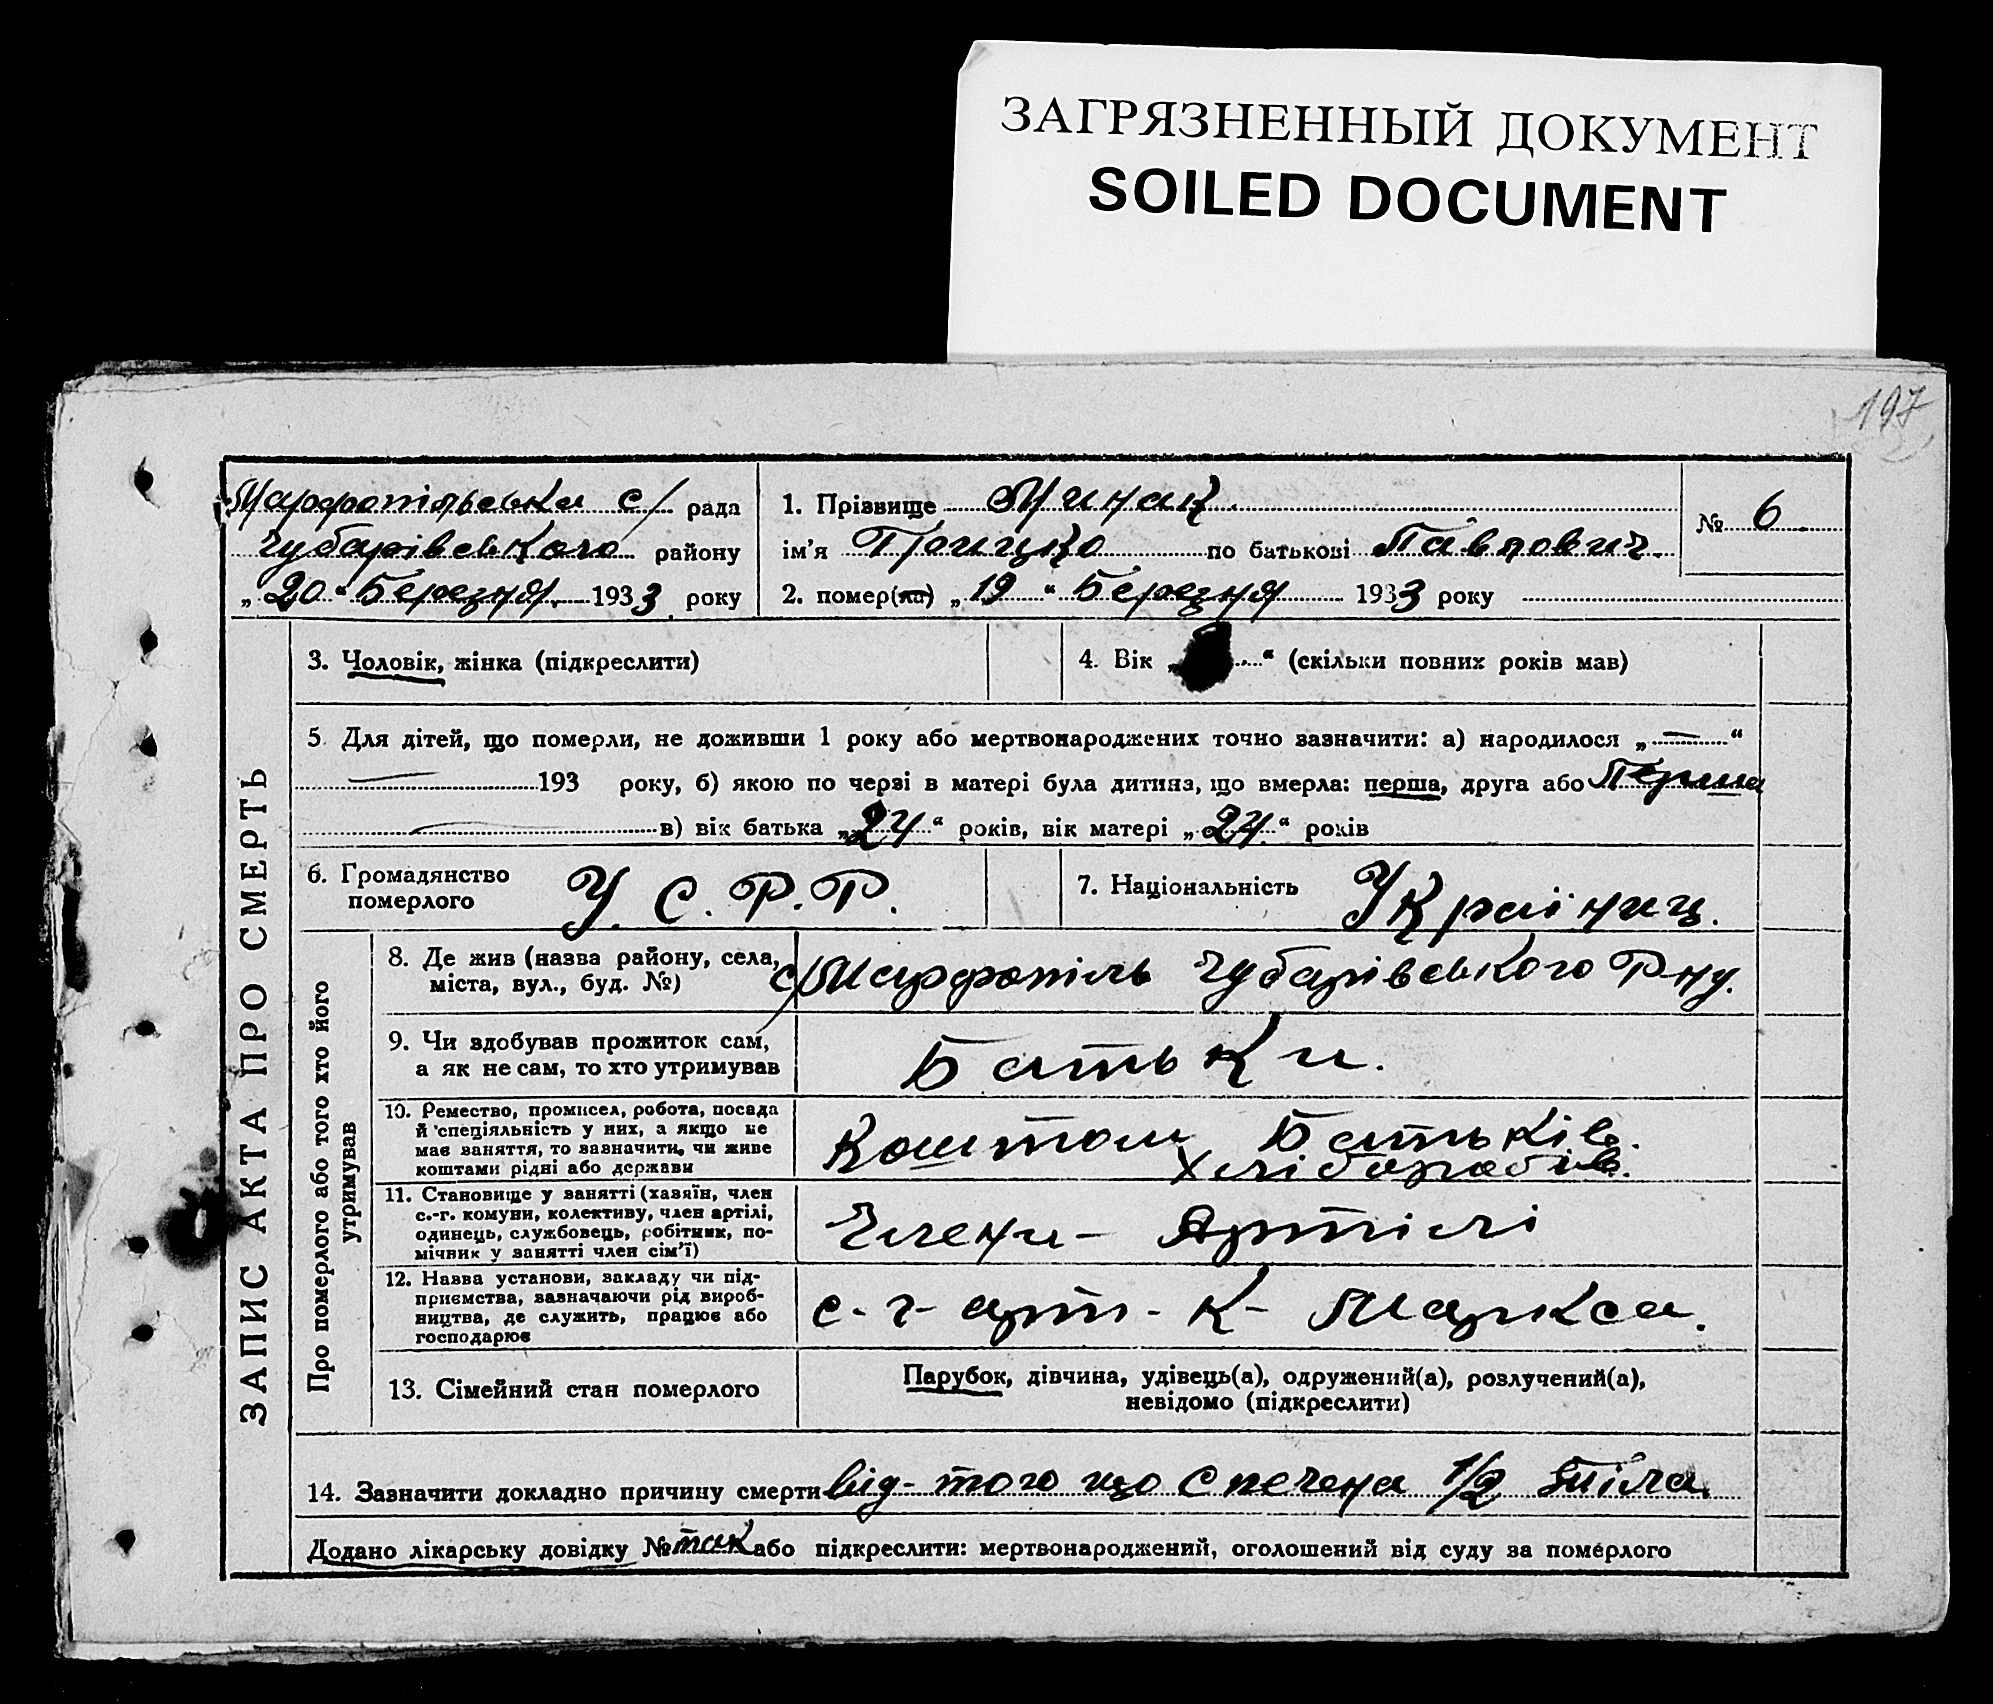 ЗАГРЯЗНЕННЫЙ ДОКУМЕНТ
SOILED DOCUMENT
197
Марфопільська с/ рада
Чубарівського району
„20“ Березня 1933 року
1. Прізвище Минак
ім’я Грицко по батькові Павлович.
2. помер(ла) „19“ Березня 1933 року
№ 6
ЗАПИС АКТА ПРО СМЕРТЬ
3. Чоловік, жінка (підкреслити)
4. Вік „ “ (скільки повних років мав)
5. Для дітей, що померли, не доживши 1 року або мертвонароджених точно зазначити: а) народилося „—“
— 193 року, б) якою по черзі в матері була дитина, що вмерла: перша, друга або Перша
— в) вік батька „24“ років, вік матері „24“ років
6. Громадянство
померлого
У. С. Р. Р.
7. Національність Українц.
Про померлого або того хто його
утримував
8. Де жив (назва району, села,
міста, вул., буд. №)
с/Марфопіль Чубарівського Р-ну.
9. Чи здобував прожиток сам,
а як не сам, то хто утримував
Батьки.
10. Ремество, промисел, робота, посада
й спеціяльність у них, а якщо не
має заняття, то зазначити, чи живе
коштами рідні або держави
Коштом Батьків.
Хліборобів.
11. Становище у занятті (хазяїн, член
с.-г. комуни, колективу, член артілі,
одинець, службовець, робітник, по-
мічник у занятті член сім’ї)
Члени - Артілі
12. Назва установи, закладу чи під-
приємства, зазначаючи рід вироб-
ництва, де служить, працює або
господарює
с-г- арт- К- Маркса.
13. Сімейний стан померлого
Парубок, дівчина, удівець(а), одружений(а), розлучений(а),
невідомо (підкреслити)
14. Зазначити докладно причину смерти від- того що спечена 1/2 тіла.
Додано лікарську довідку № так або підкреслити: мертвонароджений, оголошений від суду за померлого